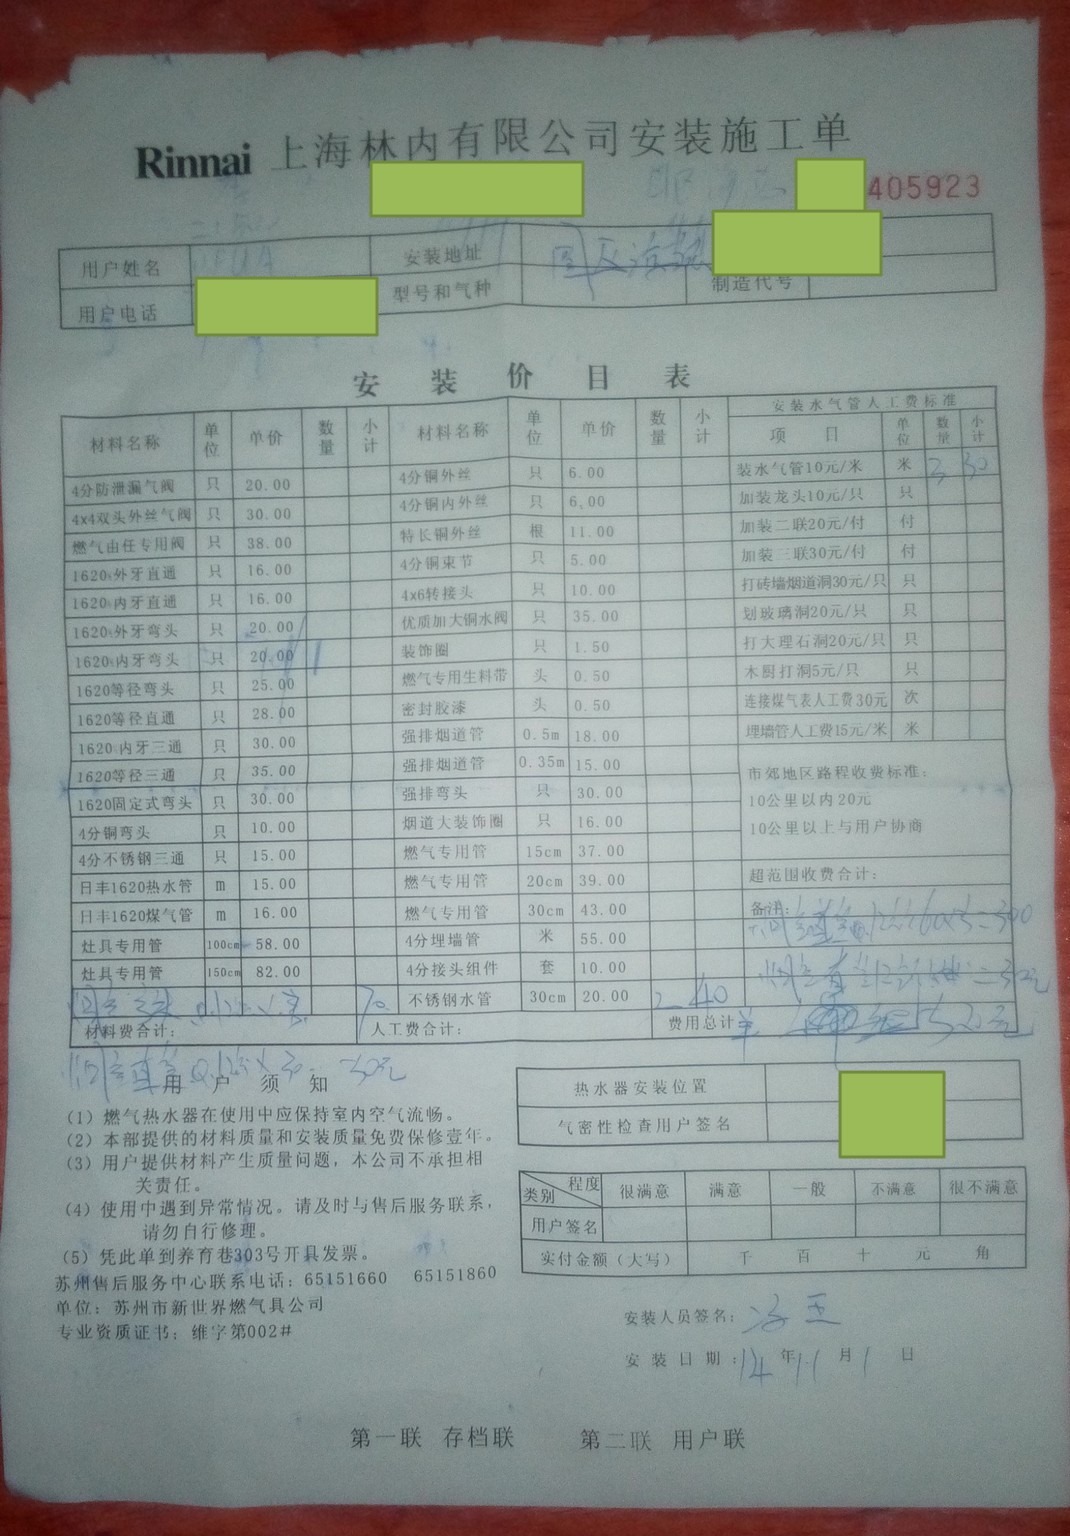 Rinnai 上海林内有限公司安装施工单
405923
用户姓名 安装地址 园区
用户电话 型号和气种 制造代号
安装价目表
材料名称 单位 单价 数量 小计 材料名称 单位 单价 数量 小计 安装水气管人工费标准
项目 单位 数量 小计
4分防泄漏气阀 只 20.00 4分铜外丝 只 6.00 装水气管10元/米 米 3 30
4x4双头外丝气阀 只 30.00 4分铜内外丝 只 6.00 加装龙头10元/只 只
燃气由任专用阀 只 38.00 特长铜外丝 根 11.00 加装二联20元/付 付
1620外牙直通 只 16.00 4分铜束节 只 5.00 加装三联30元/付 付
1620内牙直通 只 16.00 4x6转接头 只 10.00 打砖墙烟道洞30元/只 只
1620外牙弯头 只 20.00 优质加大铜水阀 只 35.00 划玻璃洞20元/只 只
1620内牙弯头 只 20.00 装饰圈 只 1.50 打大理石洞20元/只 只
1620等径弯头 只 25.00 燃气专用生料带 头 0.50 木厨打洞5元/只 只
1620等径直通 只 28.00 密封胶漆 头 0.50 连接煤气表人工费30元 次
1620内牙三通 只 30.00 强排烟道管 0.5m 18.00 埋墙管人工费15元/米 米
1620等径三通 只 35.00 强排烟道管 0.35m 15.00 市郊地区路程收费标准:
1620固定式弯头 只 30.00 强排弯头 只 30.00 10公里以内20元
4分铜弯头 只 10.00 烟道大装饰圈 只 16.00 10公里以上与用户协商
4分不锈钢三通 只 15.00 燃气专用管 15cm 37.00
日丰1620热水管 m 15.00 燃气专用管 20cm 39.00 超范围收费合计:
日丰1620煤气管 m 16.00 燃气专用管 30cm 43.00 备注:
灶具专用管 100cm 58.00 4分埋墙管 米 55.00
灶具专用管 150cm 82.00 4分接头组件 套 10.00
70 不锈钢水管 30cm 20.00 2 40
材料费合计: 人工费合计: 费用总计
用户须知
(1) 燃气热水器在使用中应保持室内空气流畅。
(2) 本部提供的材料质量和安装质量免费保修壹年。
(3) 用户提供材料产生质量问题，本公司不承担相
关责任。
(4) 使用中遇到异常情况。请及时与售后服务联系，
请勿自行修理。
(5) 凭此单到养育巷303号开具发票。
苏州售后服务中心联系电话: 65151660 65151860
单位: 苏州市新世界燃气具公司
专业资质证书: 维字第002#
热水器安装位置
气密性检查用户签名
类别 程度 很满意 满意 一般 不满意 很不满意
用户签名
实付金额(大写) 千 百 十 元 角
安装人员签名:
安装日期: 14 年 11 月 1 日
第一联 存档联 第二联 用户联